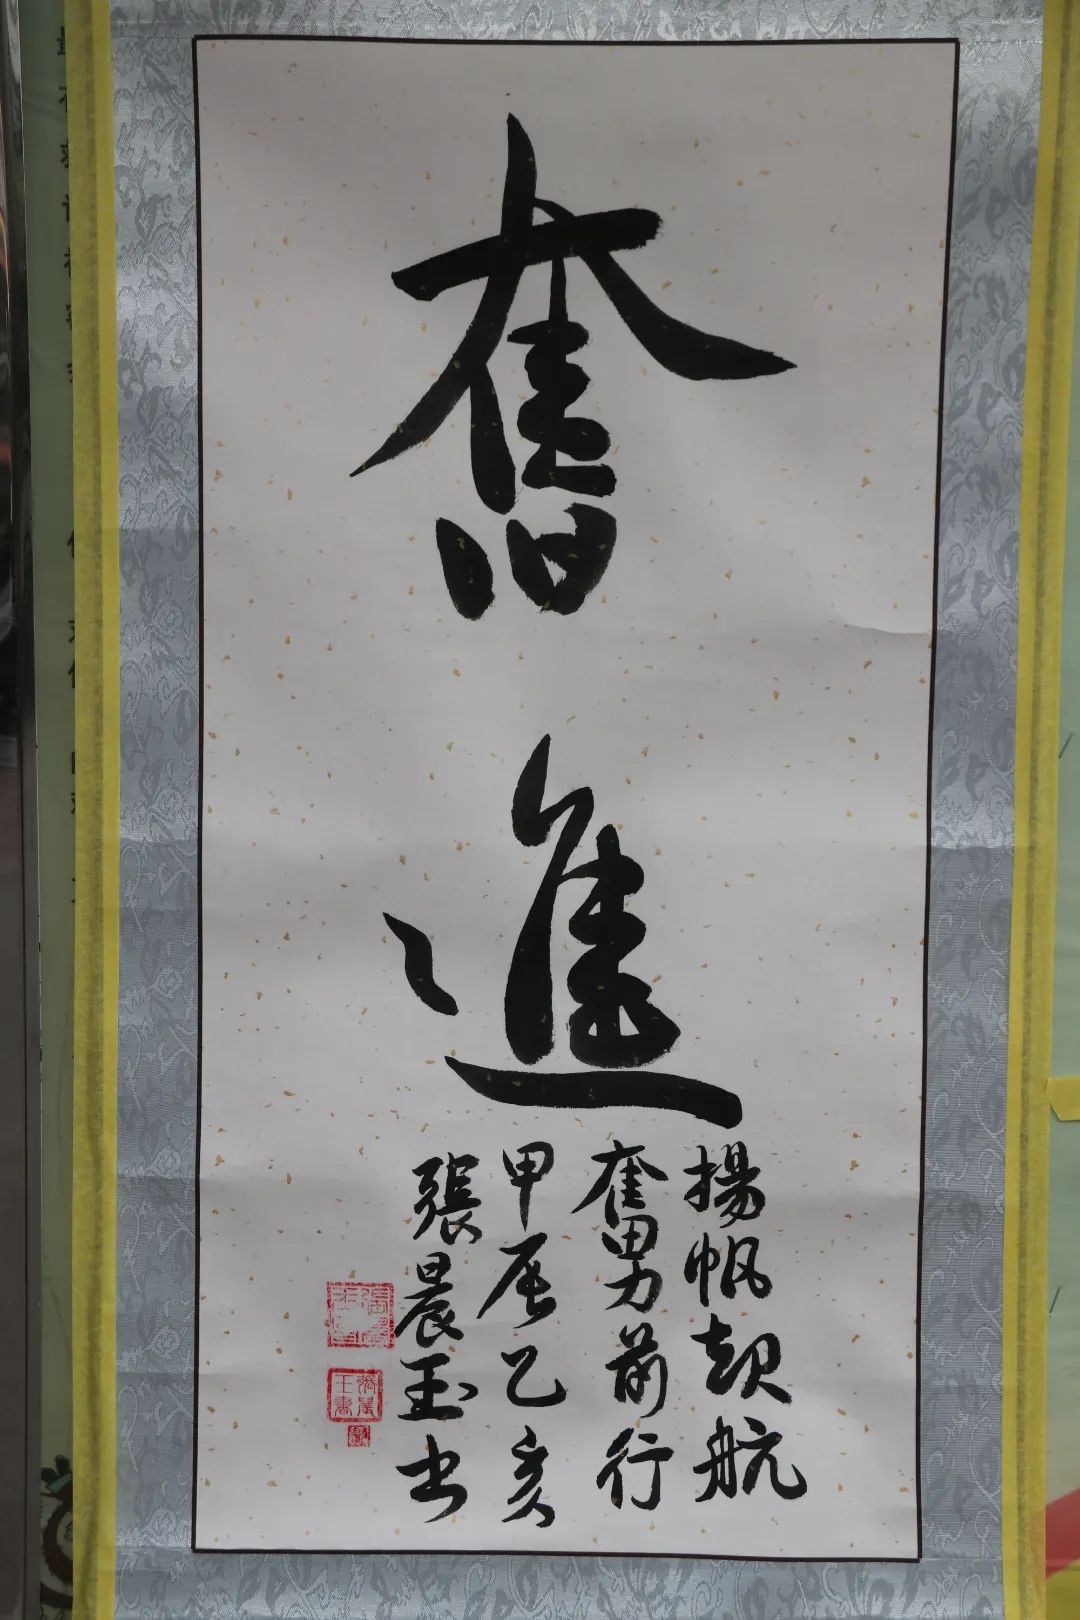 奮
進
揚帆起航
奮勇前行
甲辰乙亥
張晨玉书